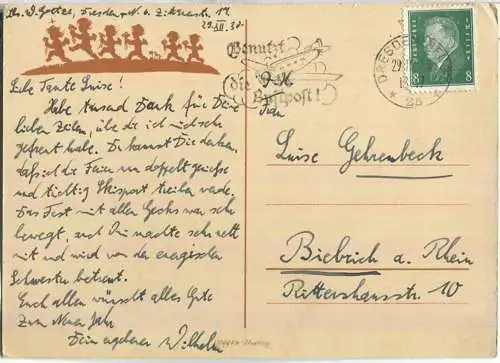 Dresden
29.XII.30
Liebe Tante Luise!
Habe tausend Dank für Deine
lieben Zeilen, über die ich mich sehr
gefreut habe. Du kannst Dir denken,
daß ich die Ferien nun doppelt genieße
und tüchtig Skisport treiben werde.
Das Fest mit allen Gästen war sehr
bewegt, und
mit und wird von der energischen
Schwester betreut.
Euch allen wünscht alles Gute
zum Neuen Jahr
Dein ergebener Wilhelm
Benutzt
die
Luftpost!
DRESDEN
29
* 28 *
8 8
Frau
Luise Gehrenbeck
Biebrich a. Rhein
Rittershausstr. 10